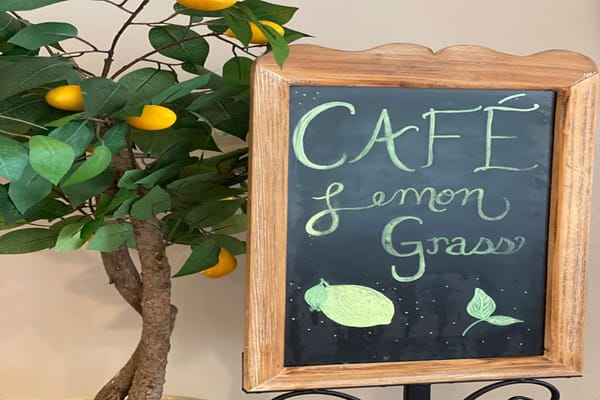 CAFÉ
Lemon
Grass